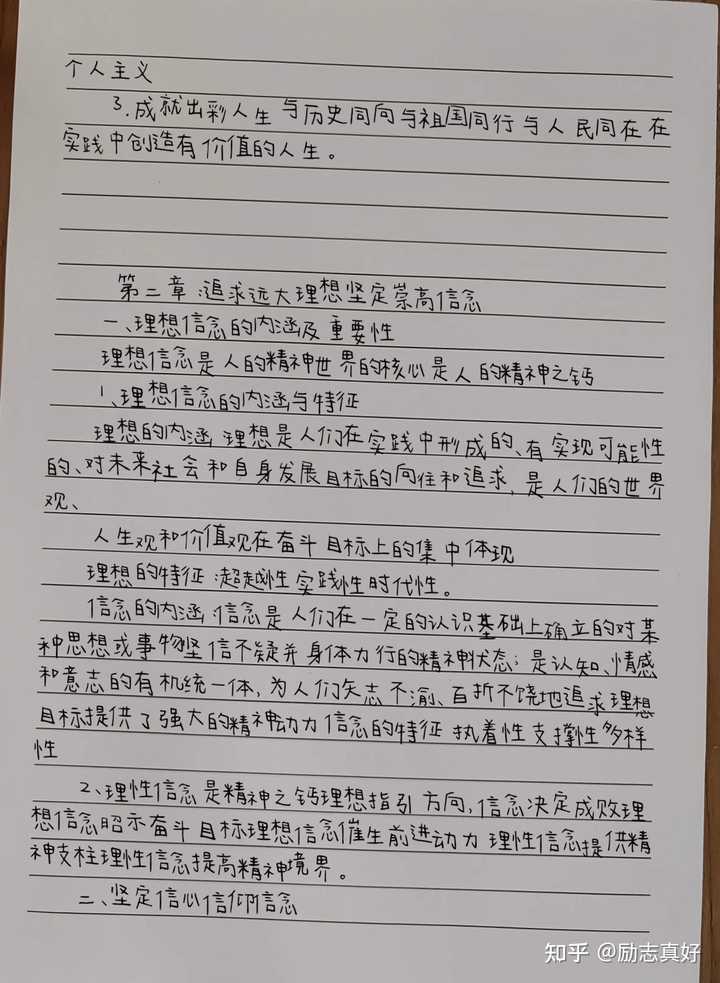 个人主义
3.成就出彩人生 与历史同向与祖国同行与人民同在在
实践中创造有价值的人生。
第二章:追求远大理想坚定崇高信念
一、理想信念的内涵及重要性
理想信念是人的精神世界的核心是人的精神之钙
1、理想信念的内涵与特征
理想的内涵 理想是人们在实践中形成的、有实现可能性
的、对未来社会和自身发展目标的向往和追求,是人们的世界
观、
人生观和价值观在奋斗目标上的集中体现
理想的特征:超越性实践性时代性。
信念的内涵:信念是人们在一定的认识基础上确立的对某
种思想或事物坚信不疑并身体力行的精神状态;是认知、情感
和意志的有机统一体,为人们矢志不渝、百折不饶地追求理想
目标提供了强大的精神动力 信念的特征 执着性支撑性多样
性
2、理性信念是精神之钙理想指引方向,信念决定成败理
想信念昭示奋斗目标理想信念催生前进动力 理性信念提供精
神支柱理性信念提高精神境界。
二、坚定信心信仰信念
知乎 @励志真好